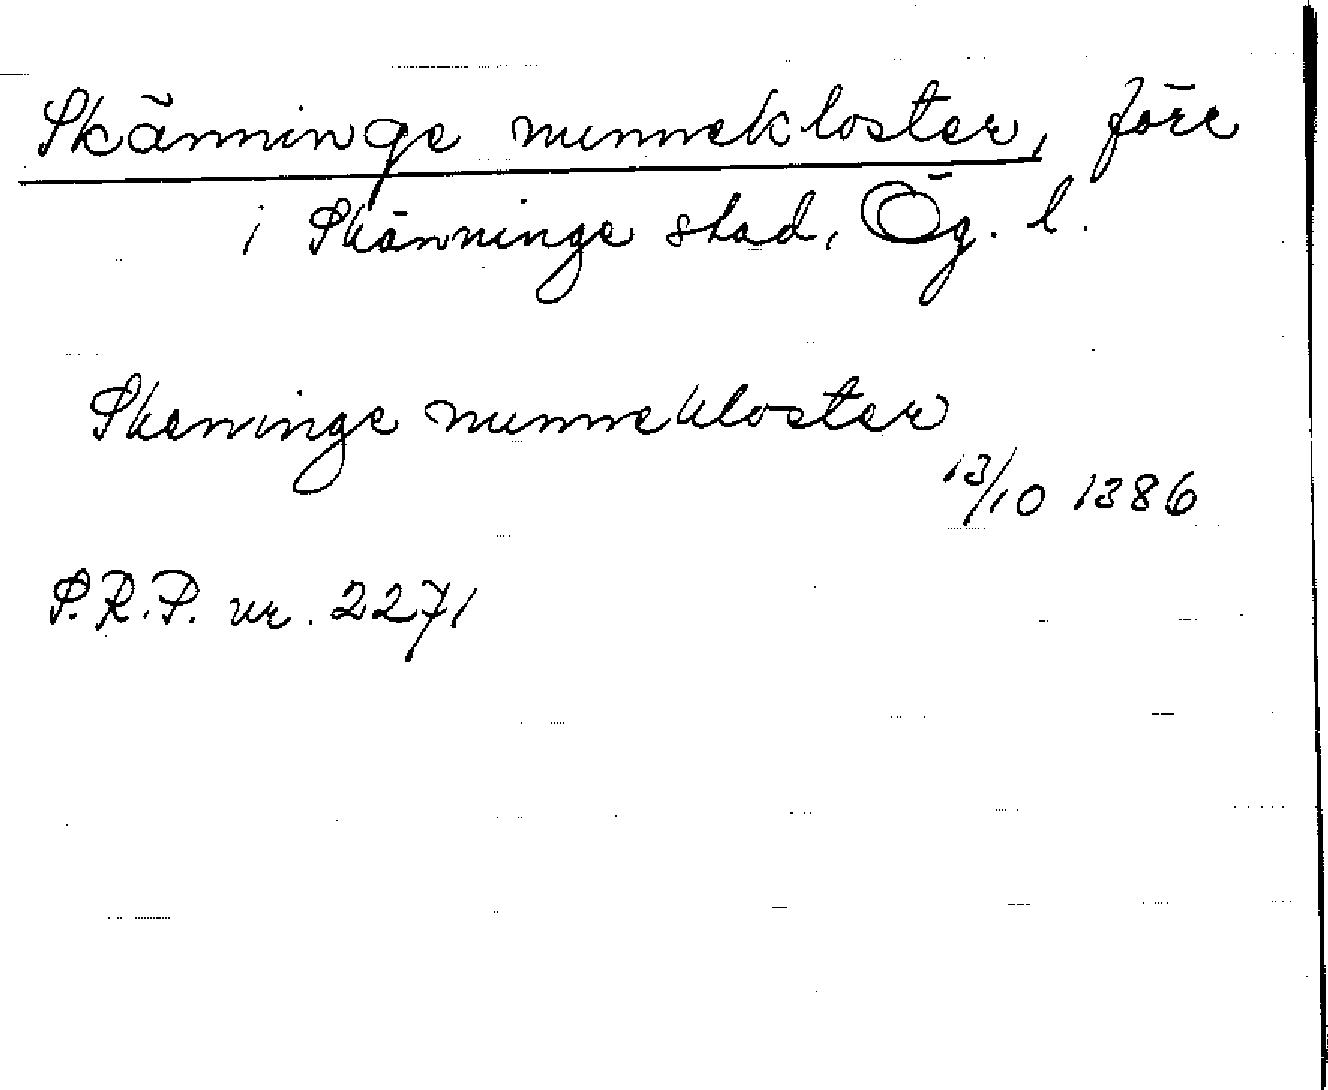 Skänninge nunnekloster, förr
i Skänninge stad, Ög. l.
Skeninge nunnekloster
13/10 1386
S.R.P. nr. 2271